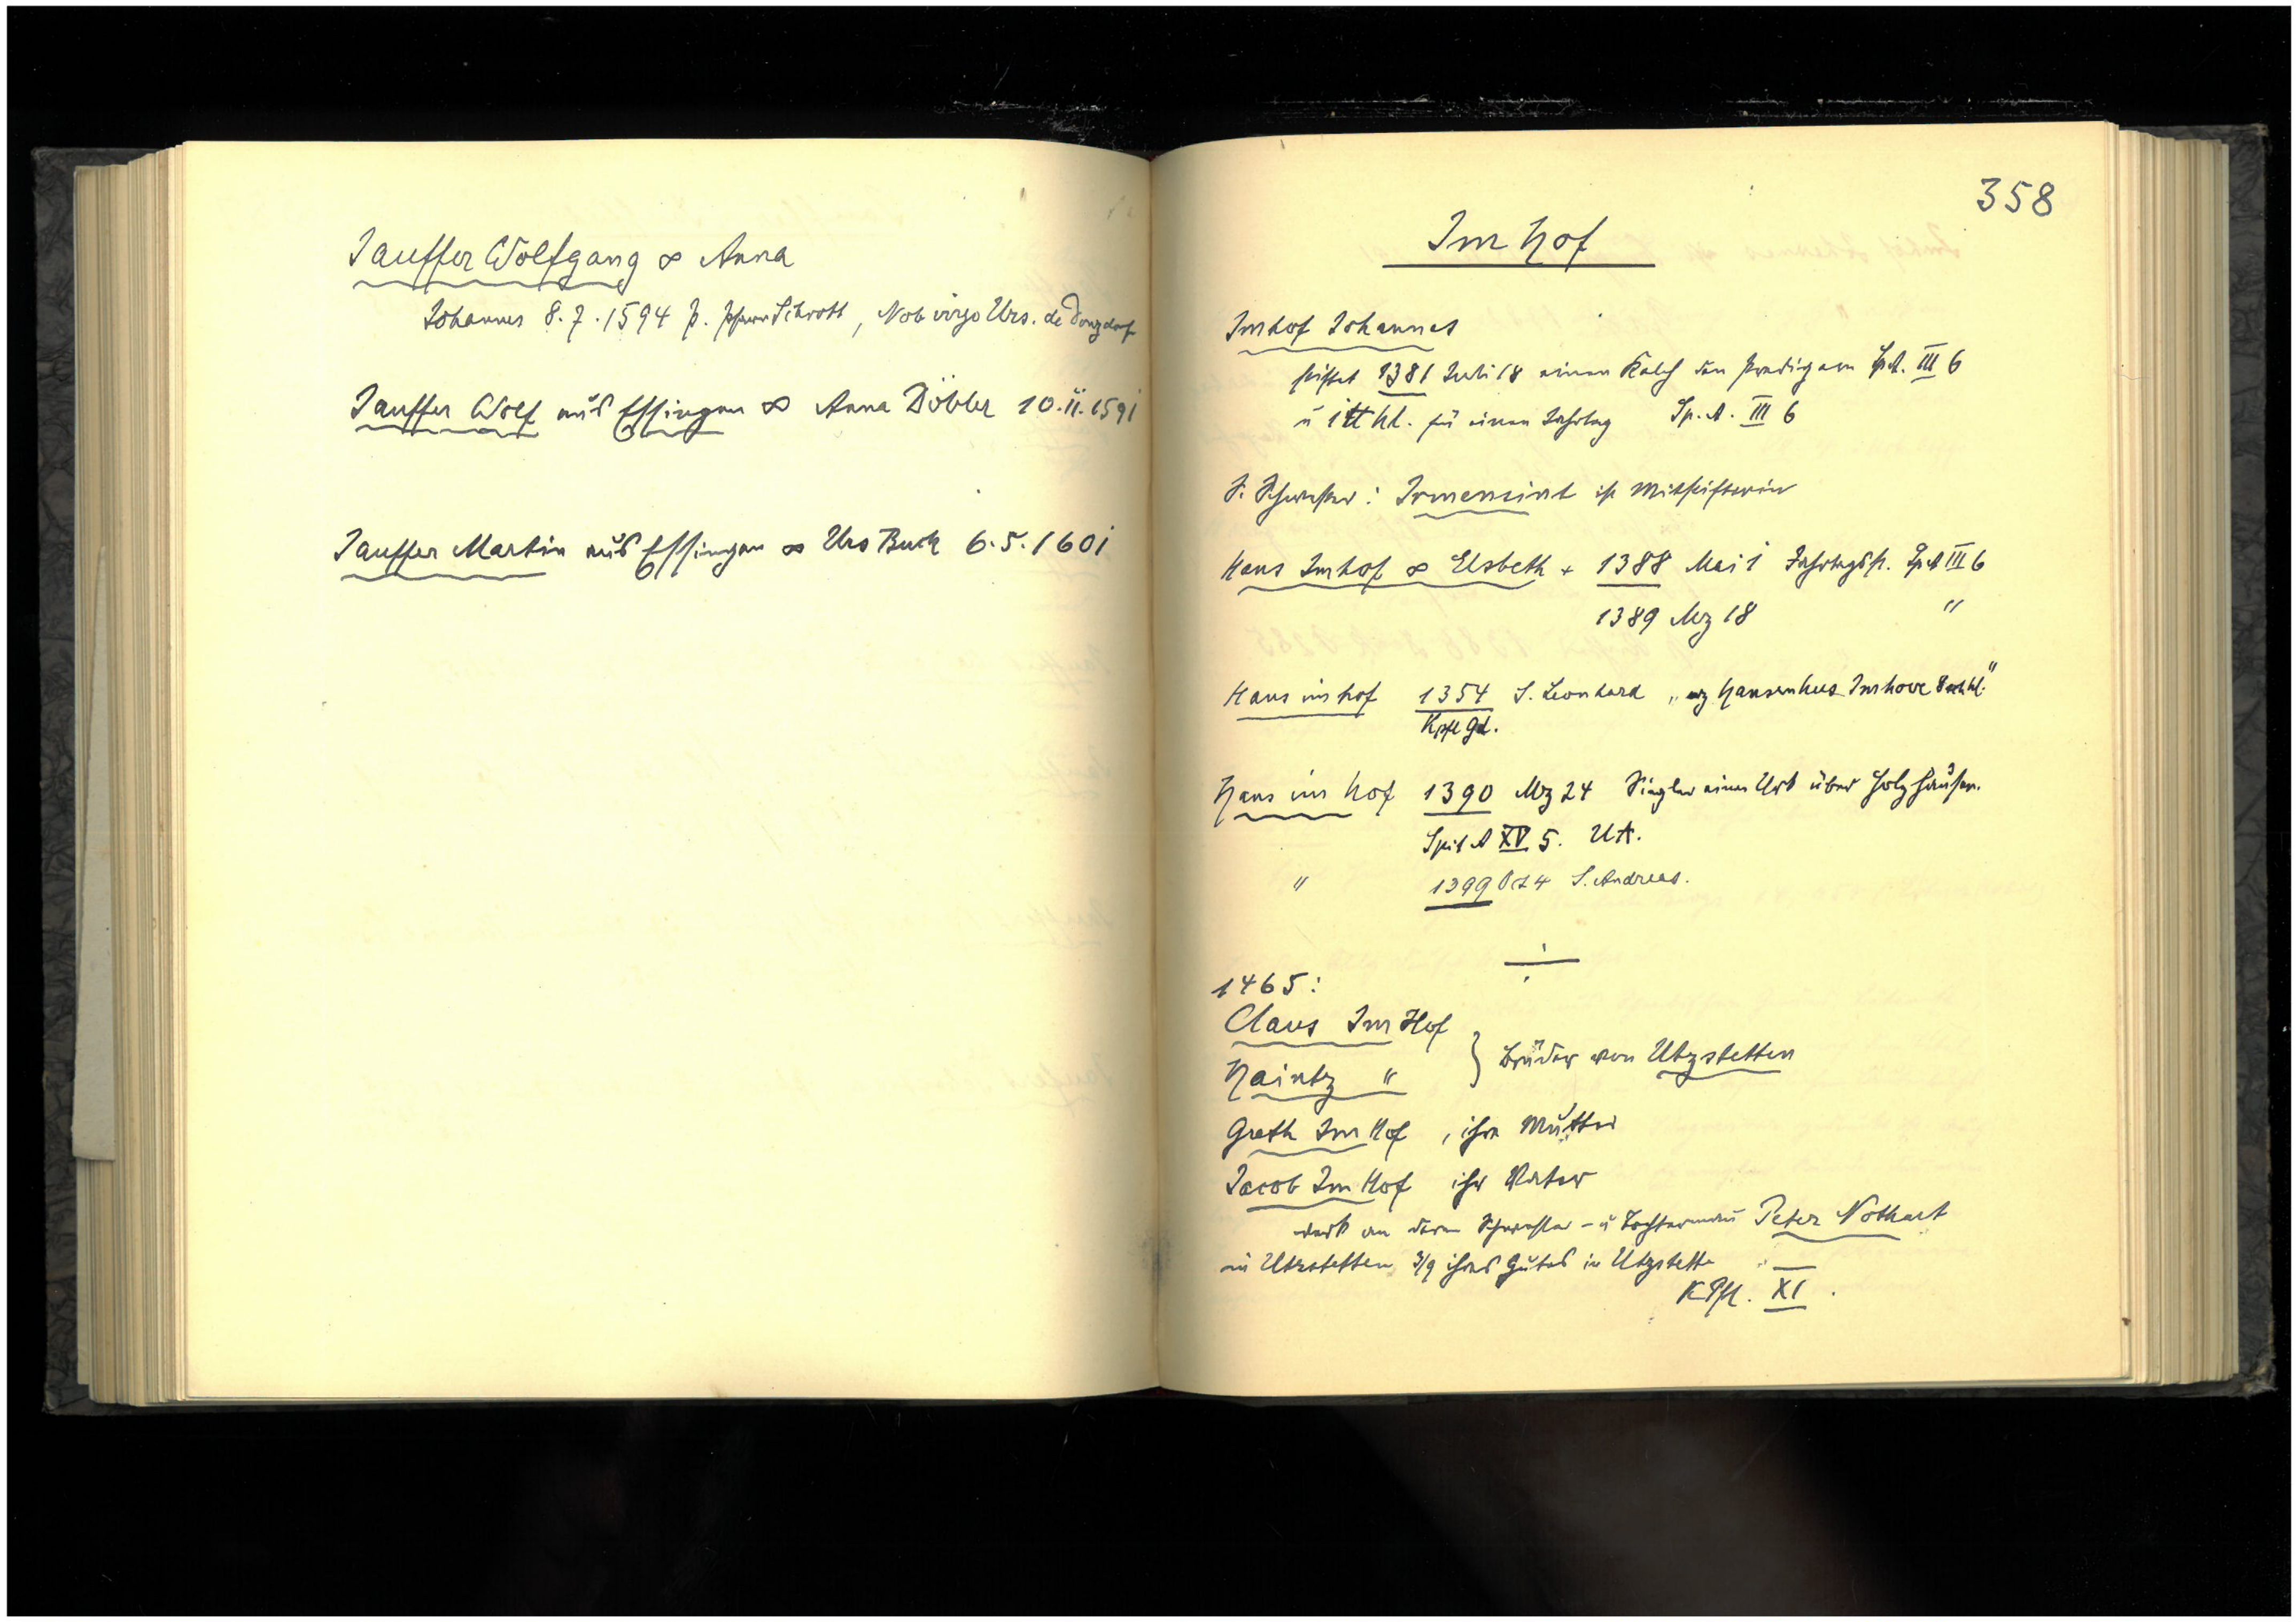 Jauffer Wolfgang ∞ Anna
Johannes 8.7.1594 p. Pfarrer Schrott, Nob virgo Urs. de Donzdorf
Jauffer Wolf aus Essingen ∞ Anna Döbler 10.11.1591
Jauffer Martin aus Essingen ∞ Urs Buck 6.5.1601
358
Im Hof
Imhof Johannes
stiftet 1381 Juli 18 einen Kelch den Predigern Sp.A. III 6
u 1 ℔ hl. für einen Jahrtag Sp.A. III 6
S. Schwester: Irmensint ist Mitstifterin
Hans Imhof ∞ Elsbeth + 1388 Mai 1 Jahrtagsst. Sp A III 6
1389 Mz 18 "
Hans im hof 1354 S. Leonhard „ Hansenhus Imhove
Kpfl gd.
Hans im Hof 1390 Mz 24 Siegler einer Urk über Holzhausen.
Spit A XV 5. UA.
" 1399 Oct 4 S. Andreas.
1465:
Claus Im Hof
Haintz " } Brüder von Utzstetten
Greth Im Hof, ihre Mutter
Jacob Im Hof ihr Vater
verk an deren Schwester- u Tochtermann Peter Nothart
in Utzstetten 3/9 ihres Gutes in Utzstette
KPfl. XI.